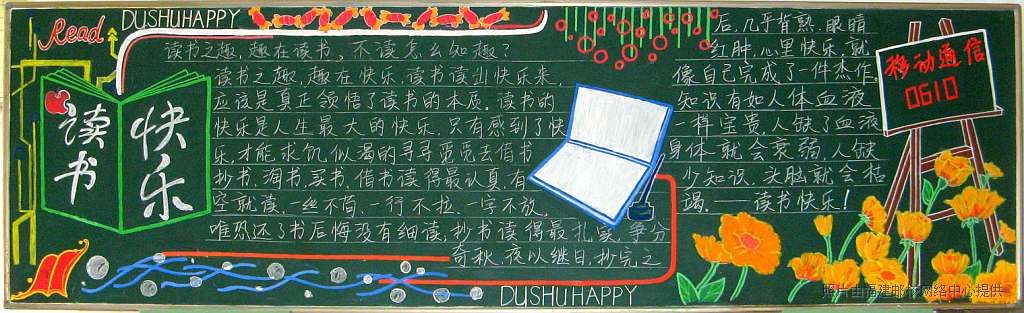 Read
DUSHUHAPPY
读书
快乐
读书之趣,趣在读书、不读怎么知趣?
读书之趣,趣在快乐、读书读出快乐来,
应该是真正领悟了读书的本质。读书的
快乐是人生最大的快乐、只有感到了快
乐,才能求饥似渴的寻寻觅觅去借书
抄书、淘书、买书、借书读得最认真、有
空就读、一丝不苟、一行不拉、一字不放,
唯恐还了书后悔没有细读,抄书读得最扎实、争分
夺秋、夜以继日,抄完之
后,几乎背熟、眼睛
红肿、心里快乐、就
像自己完成了一件杰作。
知识有如人体血液
一样宝贵,人缺了血液
身体就会衰弱、人缺
少知识、头脑就会枯
竭。——读书快乐!
DUSHUHAPPY
移动通信
0610
照片由福建邮电网络中心提供